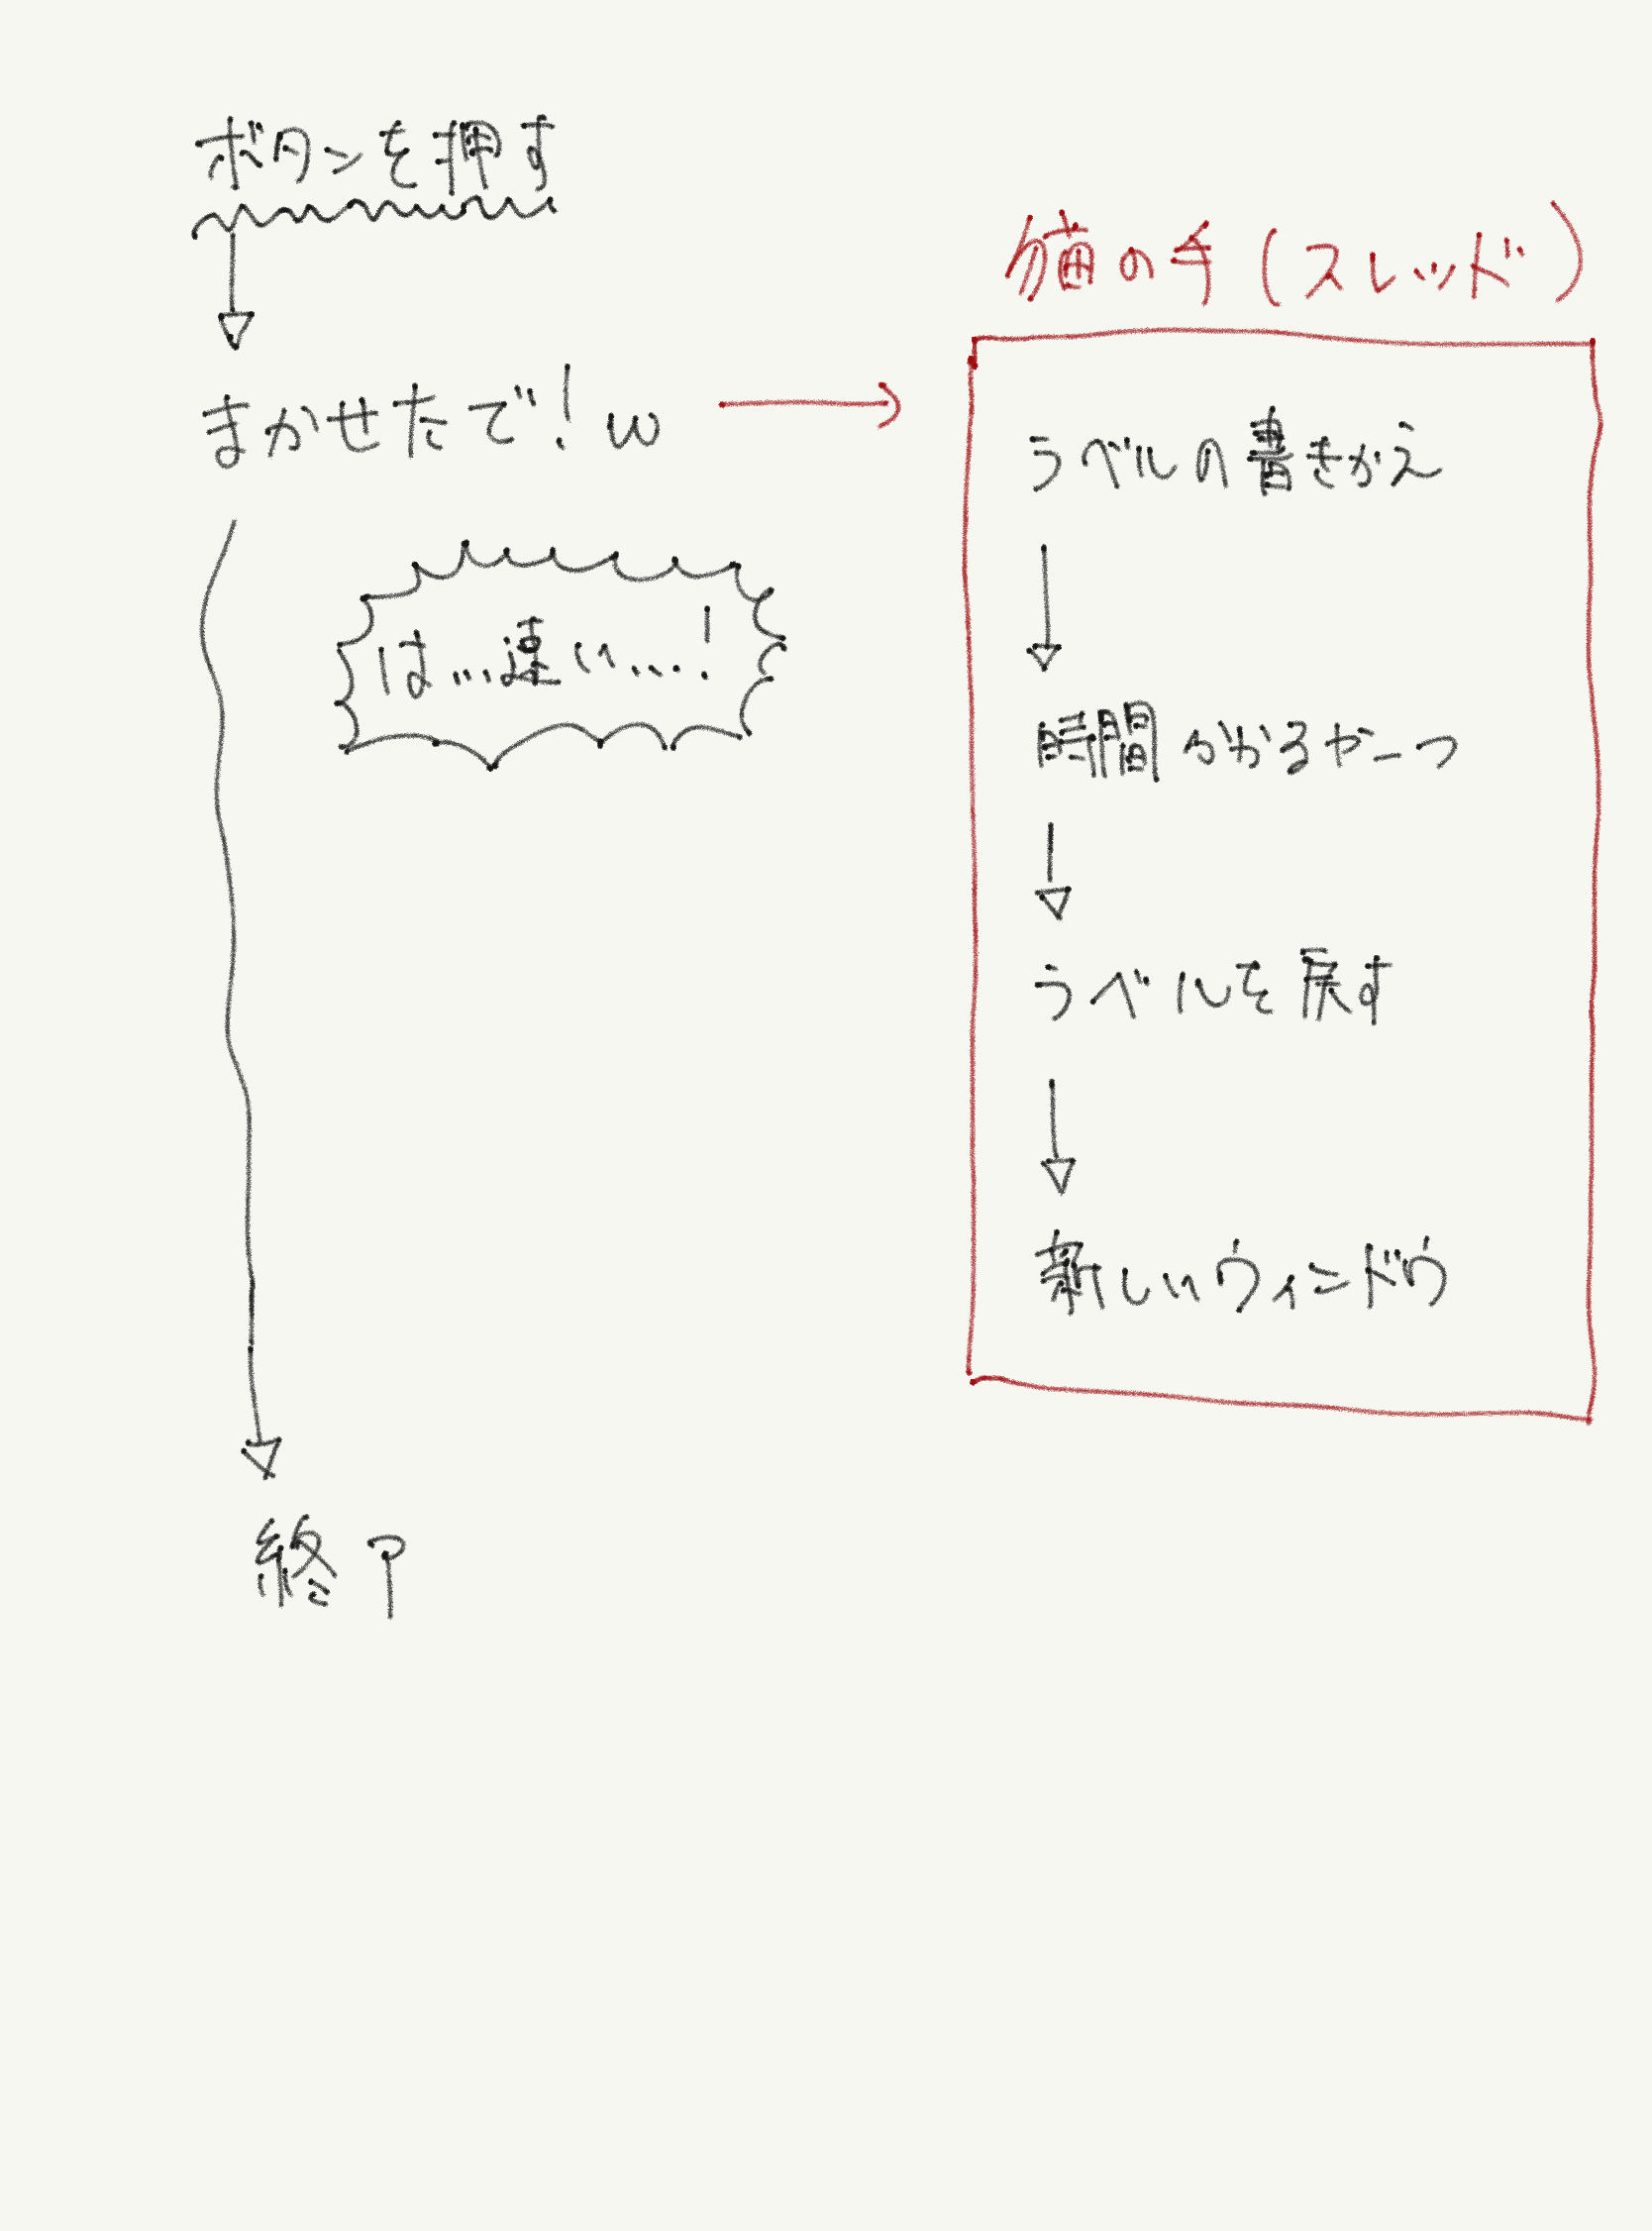 ボタンを押す
まかせたで!w
は...速い...!
終了
猫の手(スレッド)
ラベルの書きかえ
時間かかるやーつ
ラベルを戻す
新しいウィンドウ